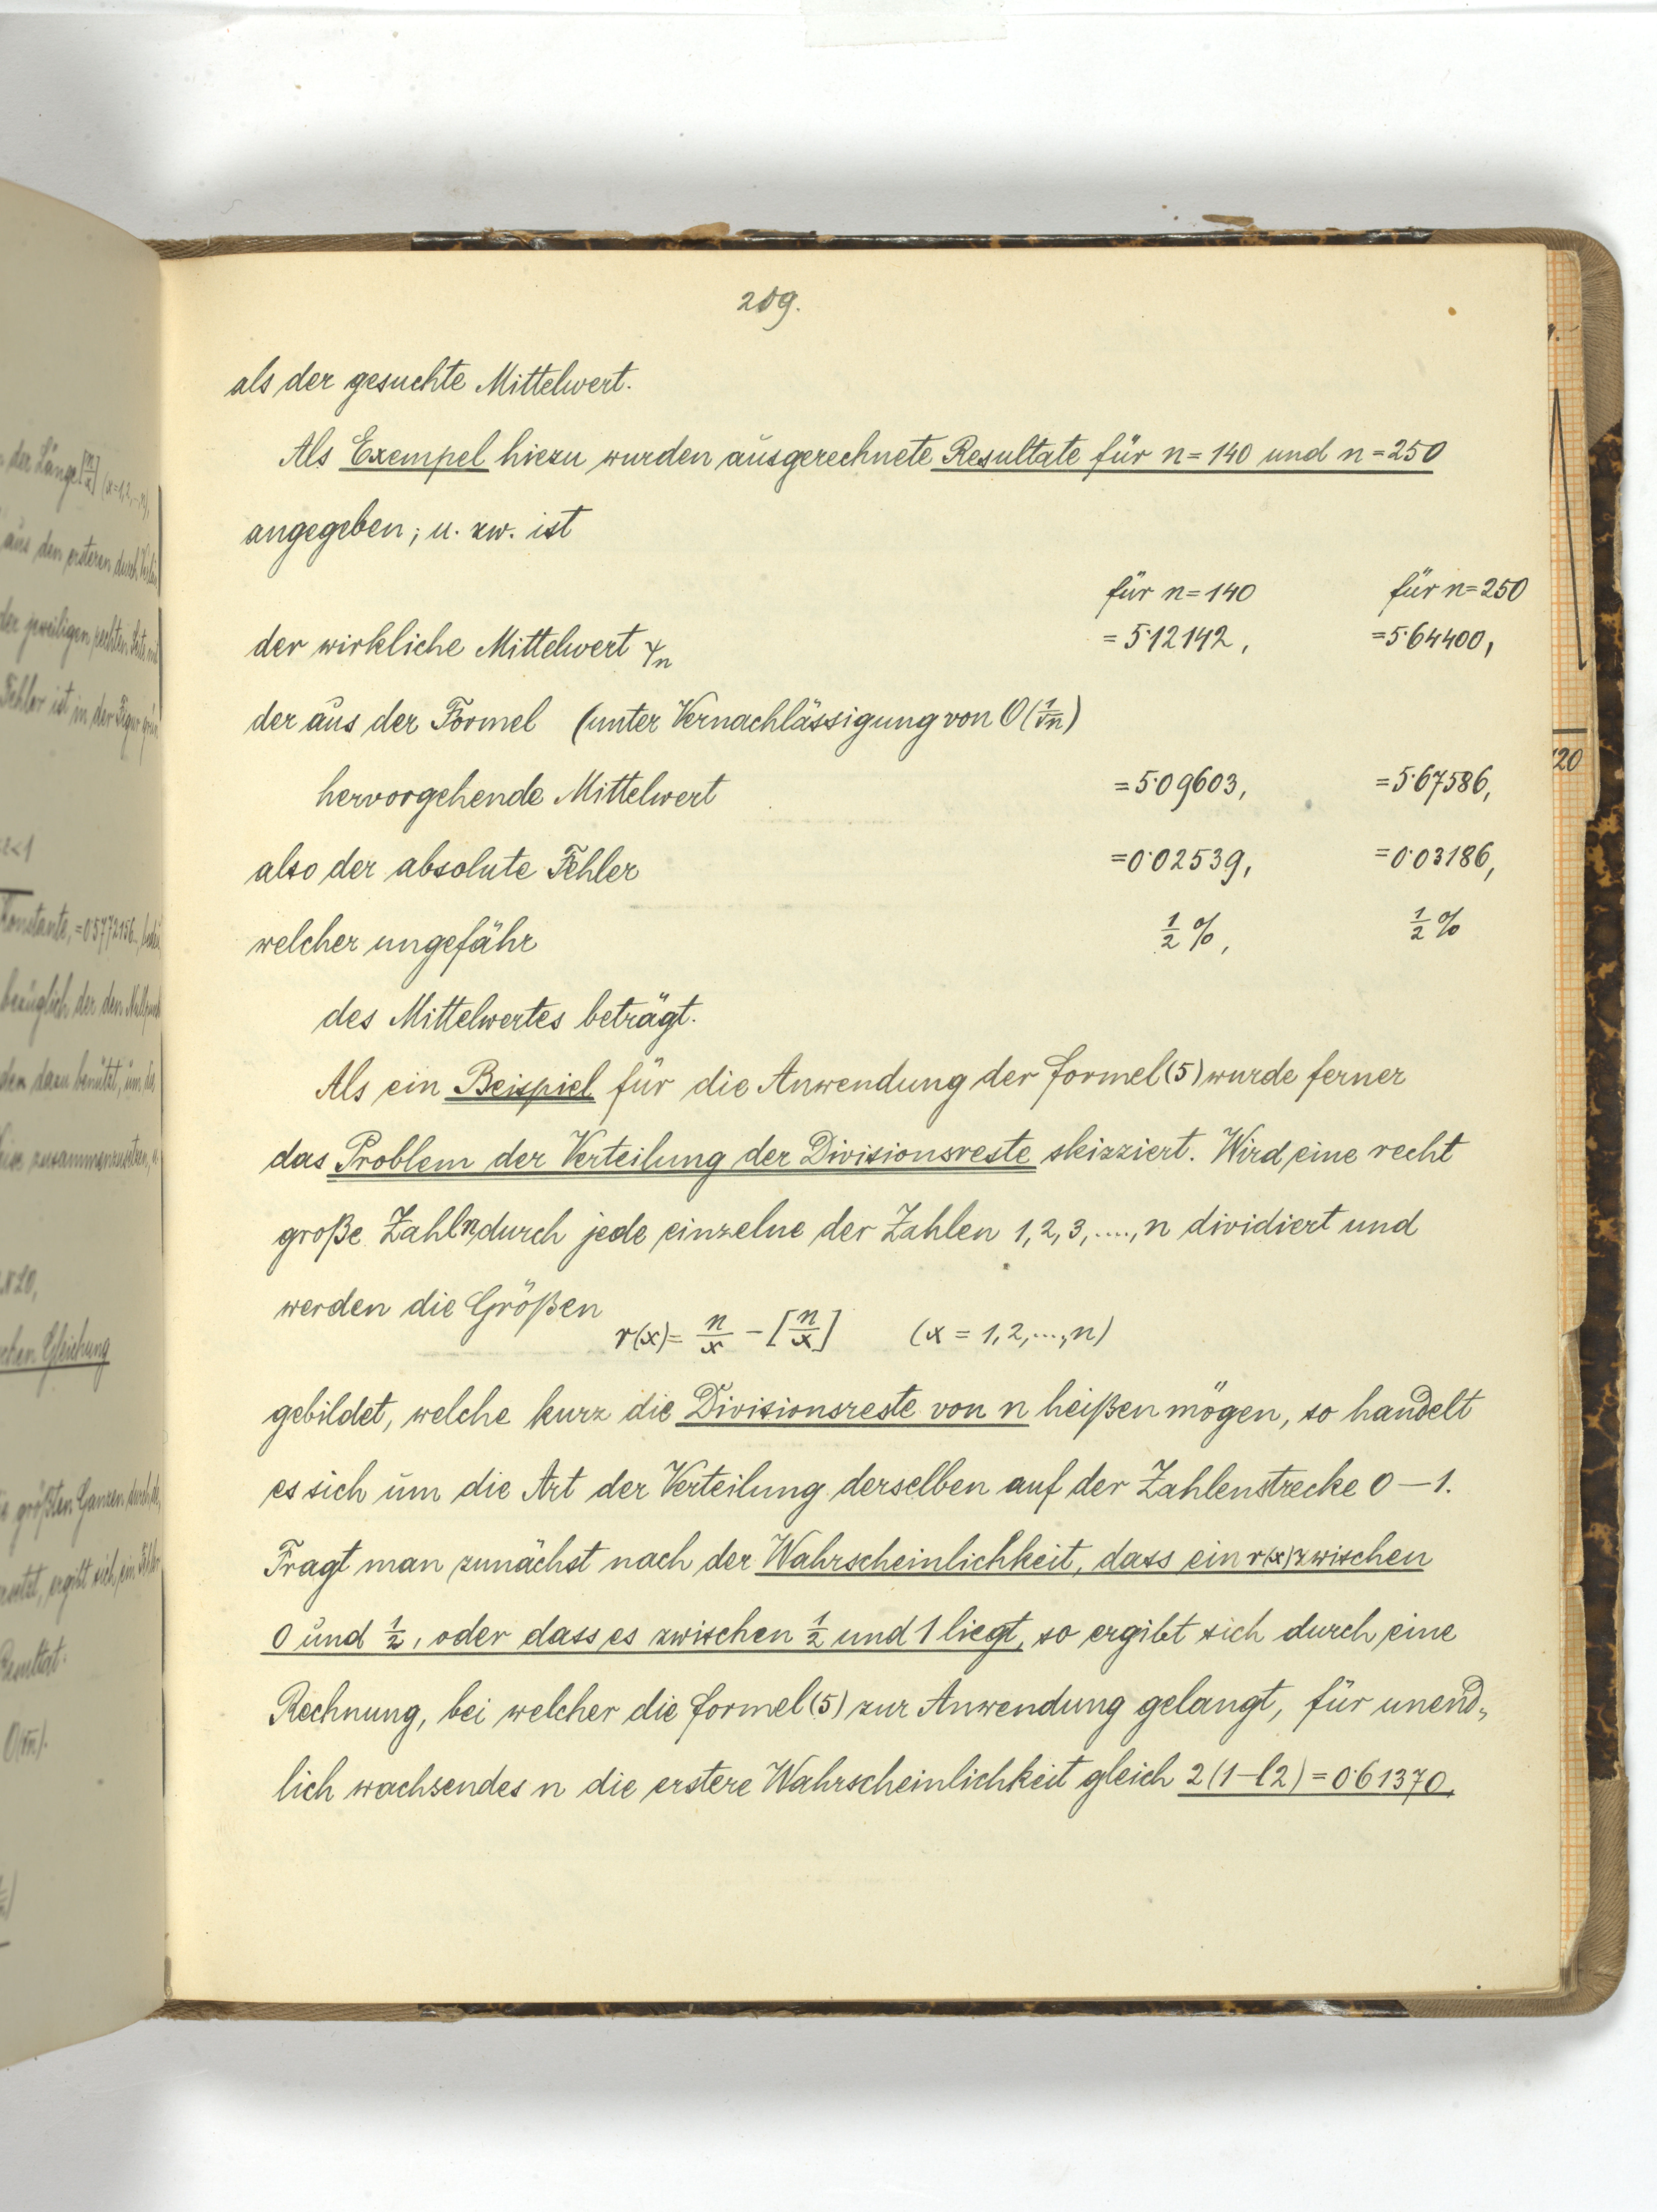 209.
als der gesuchte Mittelwert.
Als Exempel hiezu wurden ausgerechnete Resultate für n = 140 und n = 250
angegeben; u. zw. ist
für n = 140 für n = 250
der wirkliche Mittelwert = 5·12142, = 5·64400,
der aus der Formel (unter Vernachlässigung von O(1/√n)
hervorgehende Mittelwert = 5·09603, = 5·67586,
also der absolute Fehler = 0·02539, = 0·03186,
welcher ungefähr ½ %, ½ %
des Mittelwertes beträgt.
Als ein Beispiel für die Anwendung der Formel (5) wurde ferner
das Problem der Verteilung der Divisionsreste skizziert. Wird eine recht
große Zahl n durch jede einzelne der Zahlen 1, 2, 3, ...., n dividiert und
werden die Größen
r(x) = n/x − [n/x] (x = 1, 2, ..., n)
gebildet, welche kurz die Divisionsreste von n heißen mögen, so handelt
es sich um die Art der Verteilung derselben auf der Zahlenstrecke 0 — 1.
Fragt man zunächst nach der Wahrscheinlichkeit, dass ein r(x) zwischen
0 und ½, oder dass es zwischen ½ und 1 liegt, so ergibt sich durch eine
Rechnung, bei welcher die Formel (5) zur Anwendung gelangt, für unend„
lich wachsendes n die erstere Wahrscheinlichkeit gleich 2(1−l2) = 0·61370,